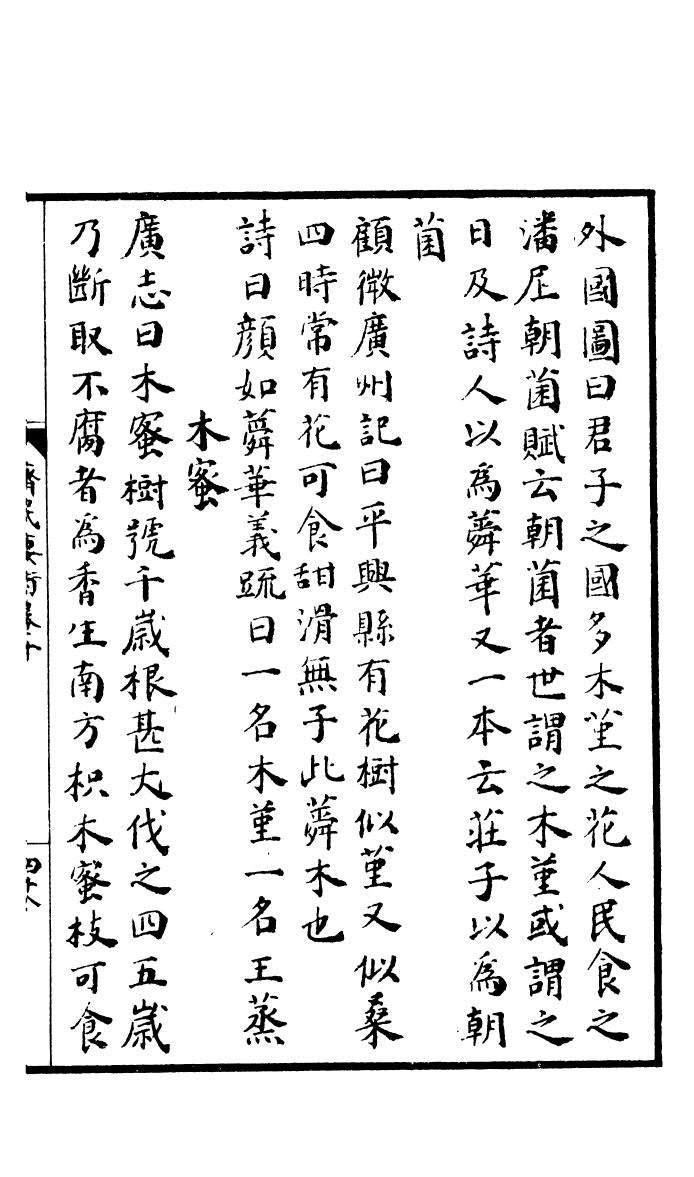 外國圖曰君子之國多木堇之花人民食之
潘尼朝菌賦云朝菌者世謂之木堇或謂之
日及詩人以為蕣華又一本云莊子以為朝
菌
顧微廣州記曰平興縣有花樹似堇又似桑
四時常有花可食甜滑無子此蕣木也
詩曰顏如蕣華義疏曰一名木堇一名王蒸
木蜜
廣志曰木蜜樹號千歲根甚大伐之四五歲
乃斷取不腐者為香生南方枳木蜜枝可食
齊民要術卷十
四十八